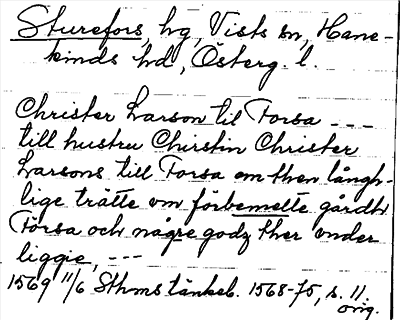 Sturefors, hg, Vists sn, Hane-
kinds hd, Österg. l.
Christer Larson til Torsa ---
till hustru Chirstin Christer
Larsons till Torsa om then långh-
lige trätte om förbemette gårdh
Torsa och någre godz ther under
liggie, ---
1569 11/6 Sthms tänkeb. 1568-75, s. 11.
orig.